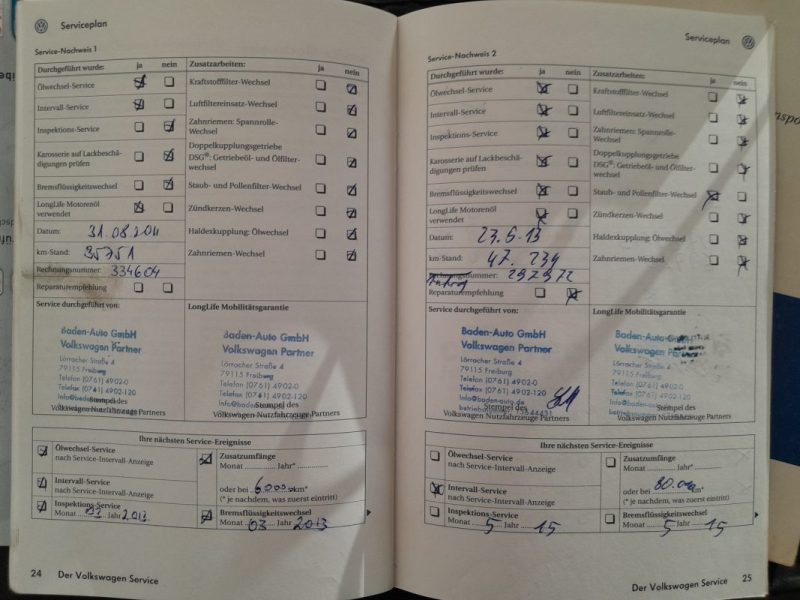 Serviceplan
Service-Nachweis 1
Durchgeführt wurde: ja nein
Ölwechsel-Service
Intervall-Service
Inspektions-Service
Karosserie auf Lackbeschä-
digungen prüfen
Bremsflüssigkeitswechsel
LongLife Motorenöl
verwendet
Datum: 31.08.2011
km-Stand: 35751
Rechnungsnummer: 334604
Reparaturempfehlung
Zusatzarbeiten: ja nein
Kraftstofffilter-Wechsel
Luftfiltereinsatz-Wechsel
Zahnriemen: Spannrolle-
Wechsel
Doppelkupplungsgetriebe
DSG®: Getriebeöl- und Ölfilter-
wechsel
Staub- und Pollenfilter-Wechsel
Zündkerzen-Wechsel
Haldexkupplung: Ölwechsel
Zahnriemen-Wechsel
Service durchgeführt von:
Baden-Auto GmbH
Volkswagen Partner
Lörracher Straße 4
79115 Freiburg
Telefon (0761) 4902-0
Telefax (0761) 4902-120
Stempel des
Volkswagen Nutzfahrzeuge-Partners
LongLife Mobilitätsgarantie
Baden-Auto GmbH
Volkswagen Partner
Lörracher Straße 4
79115 Freiburg
Telefon (0761) 4902-0
Telefax (0761) 4902-120
Ihre nächsten Service-Ereignisse
Ölwechsel-Service
nach Service-Intervall-Anzeige
Intervall-Service
nach Service-Intervall-Anzeige
Inspektions-Service
Monat 03 Jahr 2013
Zusatzumfänge
Monat Jahr*
oder bei 60000 km*
(* je nachdem, was zuerst eintritt)
Bremsflüssigkeitswechsel
Monat 03 Jahr 2013
24 Der Volkswagen Service
Serviceplan
Service-Nachweis 2
Durchgeführt wurde: ja nein
Ölwechsel-Service
Intervall-Service
Inspektions-Service
Karosserie auf Lackbeschä-
digungen prüfen
Bremsflüssigkeitswechsel
LongLife Motorenöl
verwendet
Datum: 23.5.13
km-Stand: 47.234
Rechnungsnummer: 297972
Reparaturempfehlung
Zusatzarbeiten: ja nein
Kraftstofffilter-Wechsel
Luftfiltereinsatz-Wechsel
Zahnriemen: Spannrolle-
Wechsel
Doppelkupplungsgetriebe
DSG®: Getriebeöl- und Ölfilter-
wechsel
Staub- und Pollenfilter-Wechsel
Zündkerzen-Wechsel
Haldexkupplung: Ölwechsel
Zahnriemen-Wechsel
Service durchgeführt von:
Baden-Auto GmbH
Volkswagen Partner
Lörracher Straße 4
79115 Freiburg
Telefon (0761) 4902-0
Telefax (0761) 4902-120
Info@baden-auto.de
Stempel des
Volkswagen Nutzfahrzeuge-Partners
LongLife Mobilitätsgarantie
Baden-Auto GmbH
Volkswagen Partner
Lörracher Straße 4
79115 Freiburg
Telefon (0761) 4902-0
Telefax (0761) 4902-120
Ihre nächsten Service-Ereignisse
Ölwechsel-Service
nach Service-Intervall-Anzeige
Intervall-Service
nach Service-Intervall-Anzeige
Inspektions-Service
Monat 5 Jahr 15
Zusatzumfänge
Monat Jahr*
oder bei 80.000 km*
(* je nachdem, was zuerst eintritt)
Bremsflüssigkeitswechsel
Monat 5 Jahr 15
Der Volkswagen Service 25